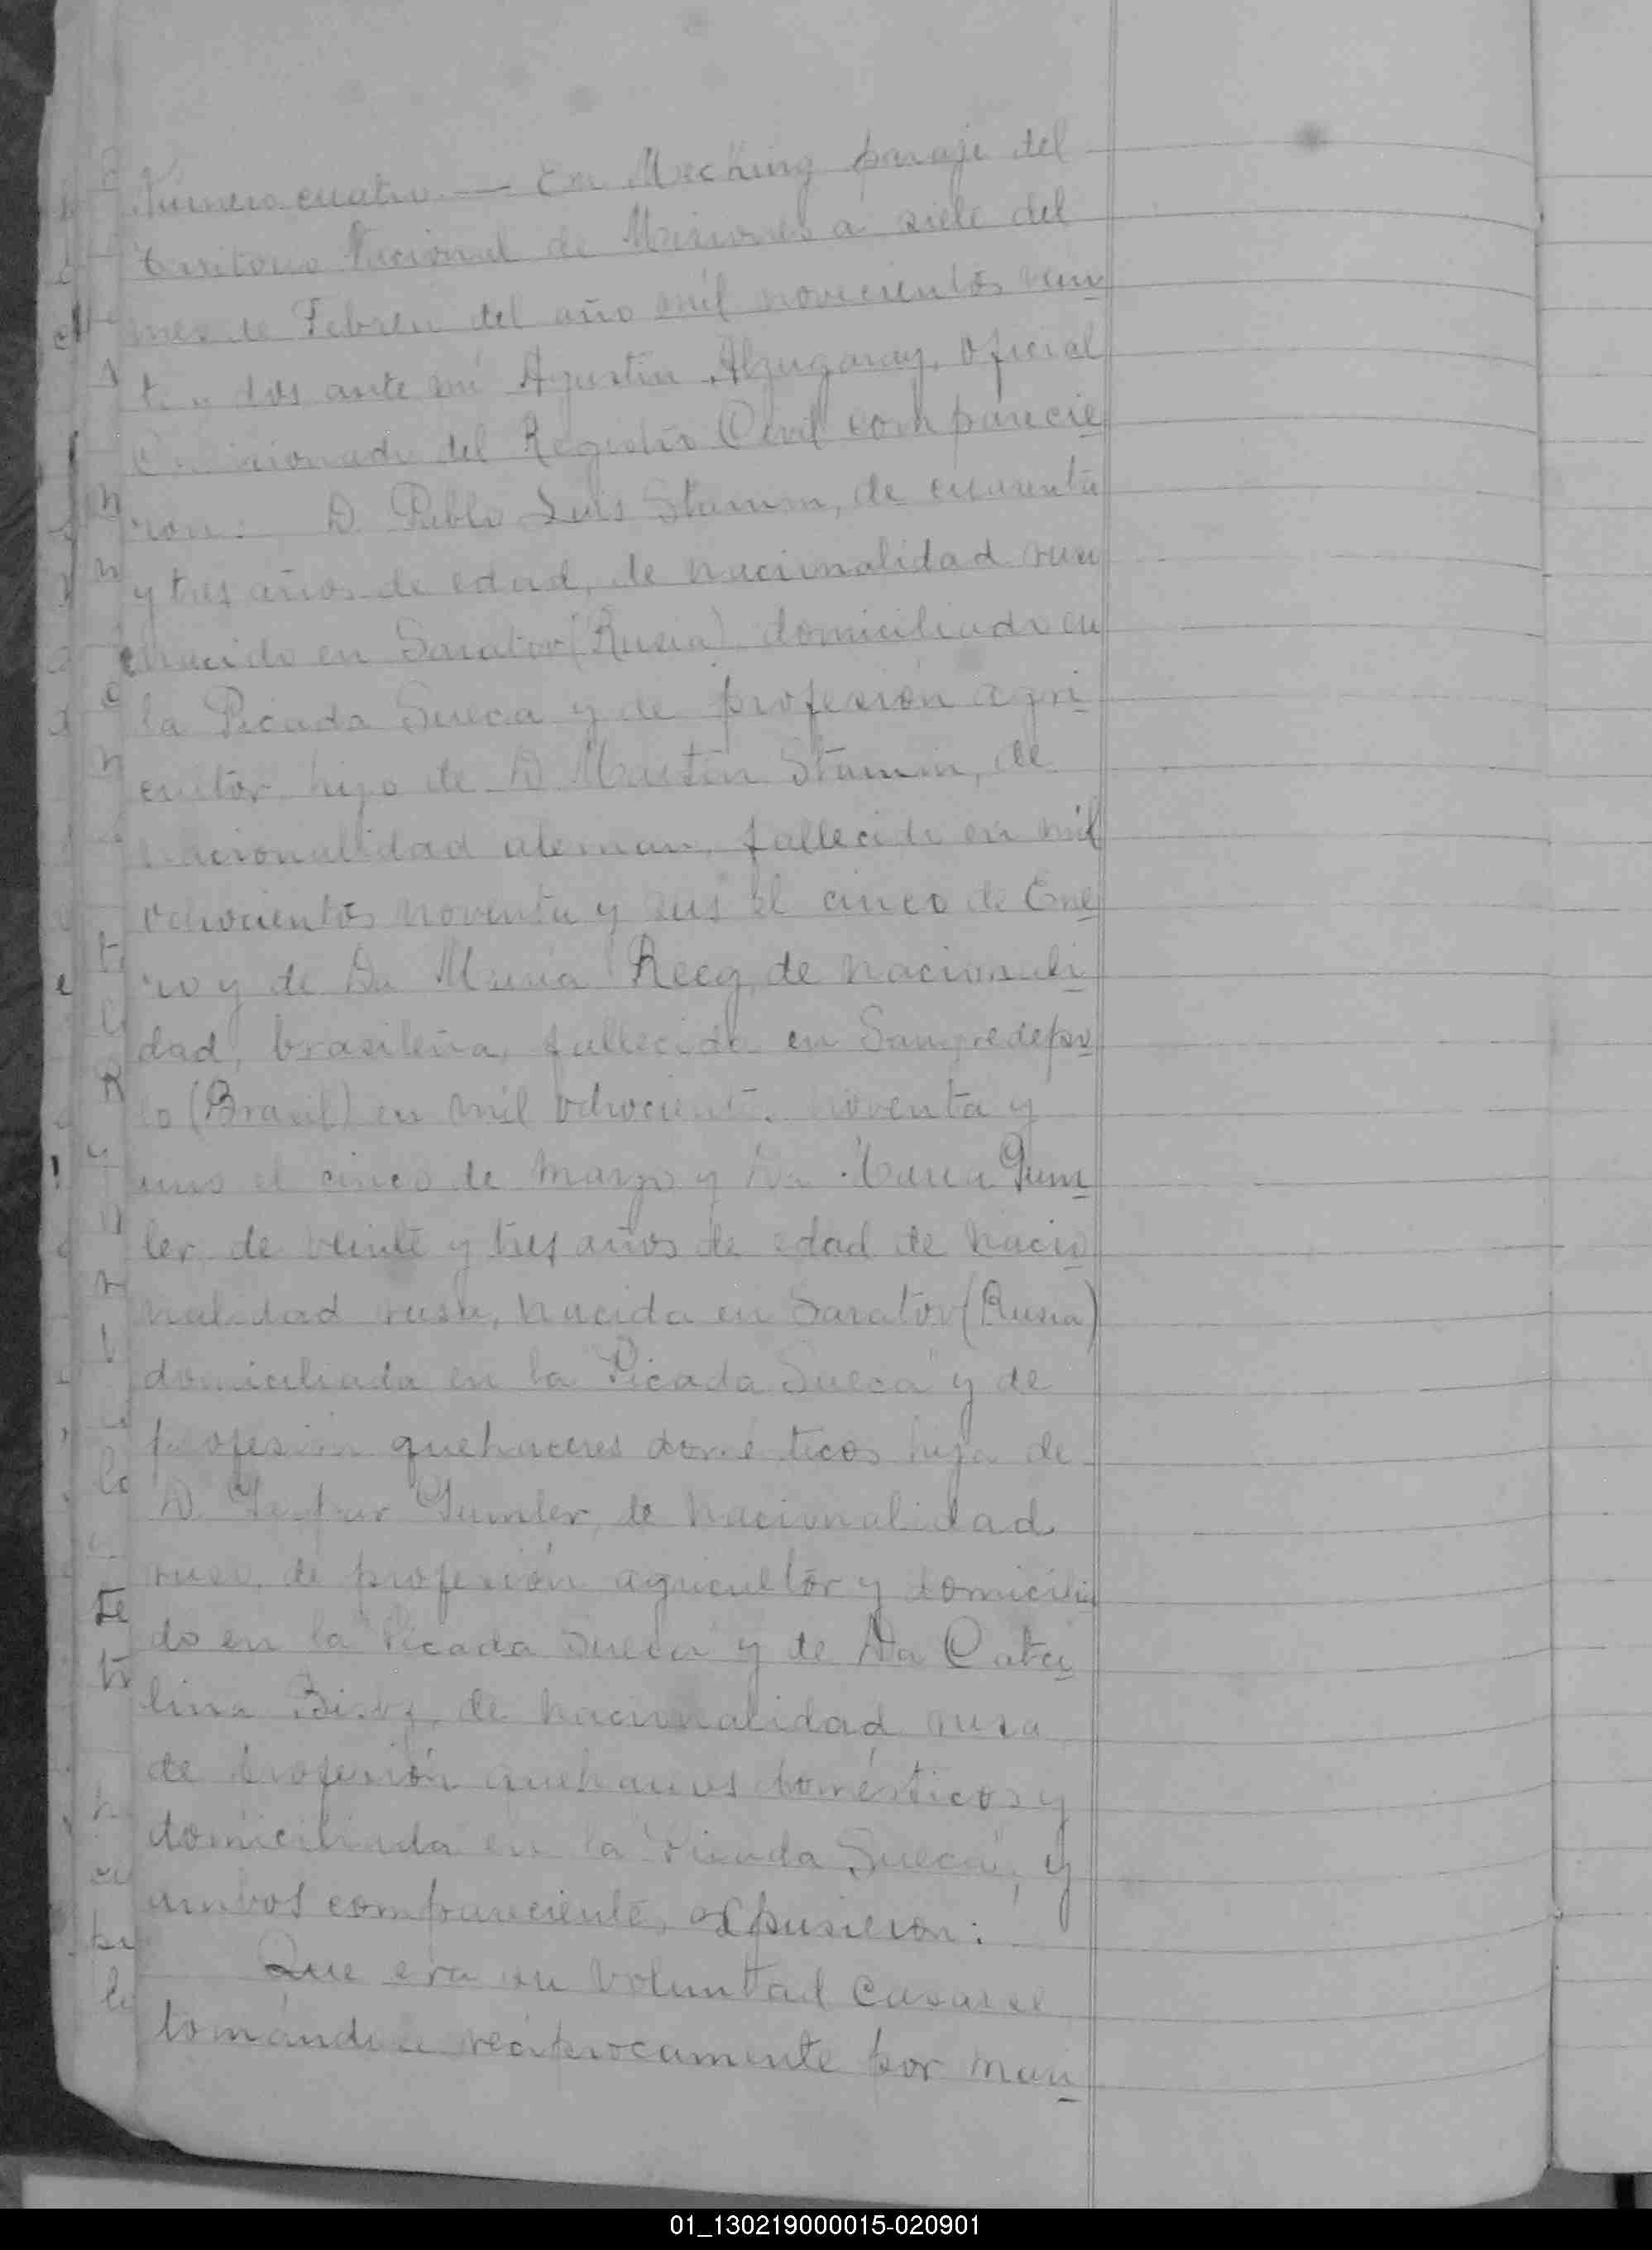 Número cuatro. — En Mecking paraje del
Territorio Nacional de Misiones a siete del
mes de Febrero del año mil novecientos vein
te y dos ante mi Agustín Alzugaray, Oficial
Comisionado del Registro Civil comparecie
ron: D. Pablo Luis Stamm, de cuarenta
y tres años de edad, de nacionalidad ruso
nacido en Saratov (Rusia) domiciliado en
la Picada Sueca y de profesión agri
cultor hijo de D. Martín Stamm, de
nacionalidad aleman, fallecido en mil
ochocientos noventa y seis el cinco de Ene
ro y de Da María Reeg, de nacionali
dad, brasileña, fallecida en Sangredepo
lo (Brasil) en mil ochocientos noventa y
uno el cinco de Marzo y Da María Gum
ler de veinte y tres años de edad de nacio
nalidad rusa, nacida en Saratov (Rusia)
domiciliada en la "Picada Sueca" y de
profesión quehaceres domésticos hija de
D. Gumler, de nacionalidad
ruso, de profesión agricultor y domicilia
do en la "Picada Sueca" y de Da Cata
lina de nacionalidad rusa
de profesión quehaceres domésticos y
domiciliada en la "Picada Sueca", y
ambos comparecientes expusieron:
Que era su voluntad casarse
tomándose recíprocamente por mari
01_130219000015-020901